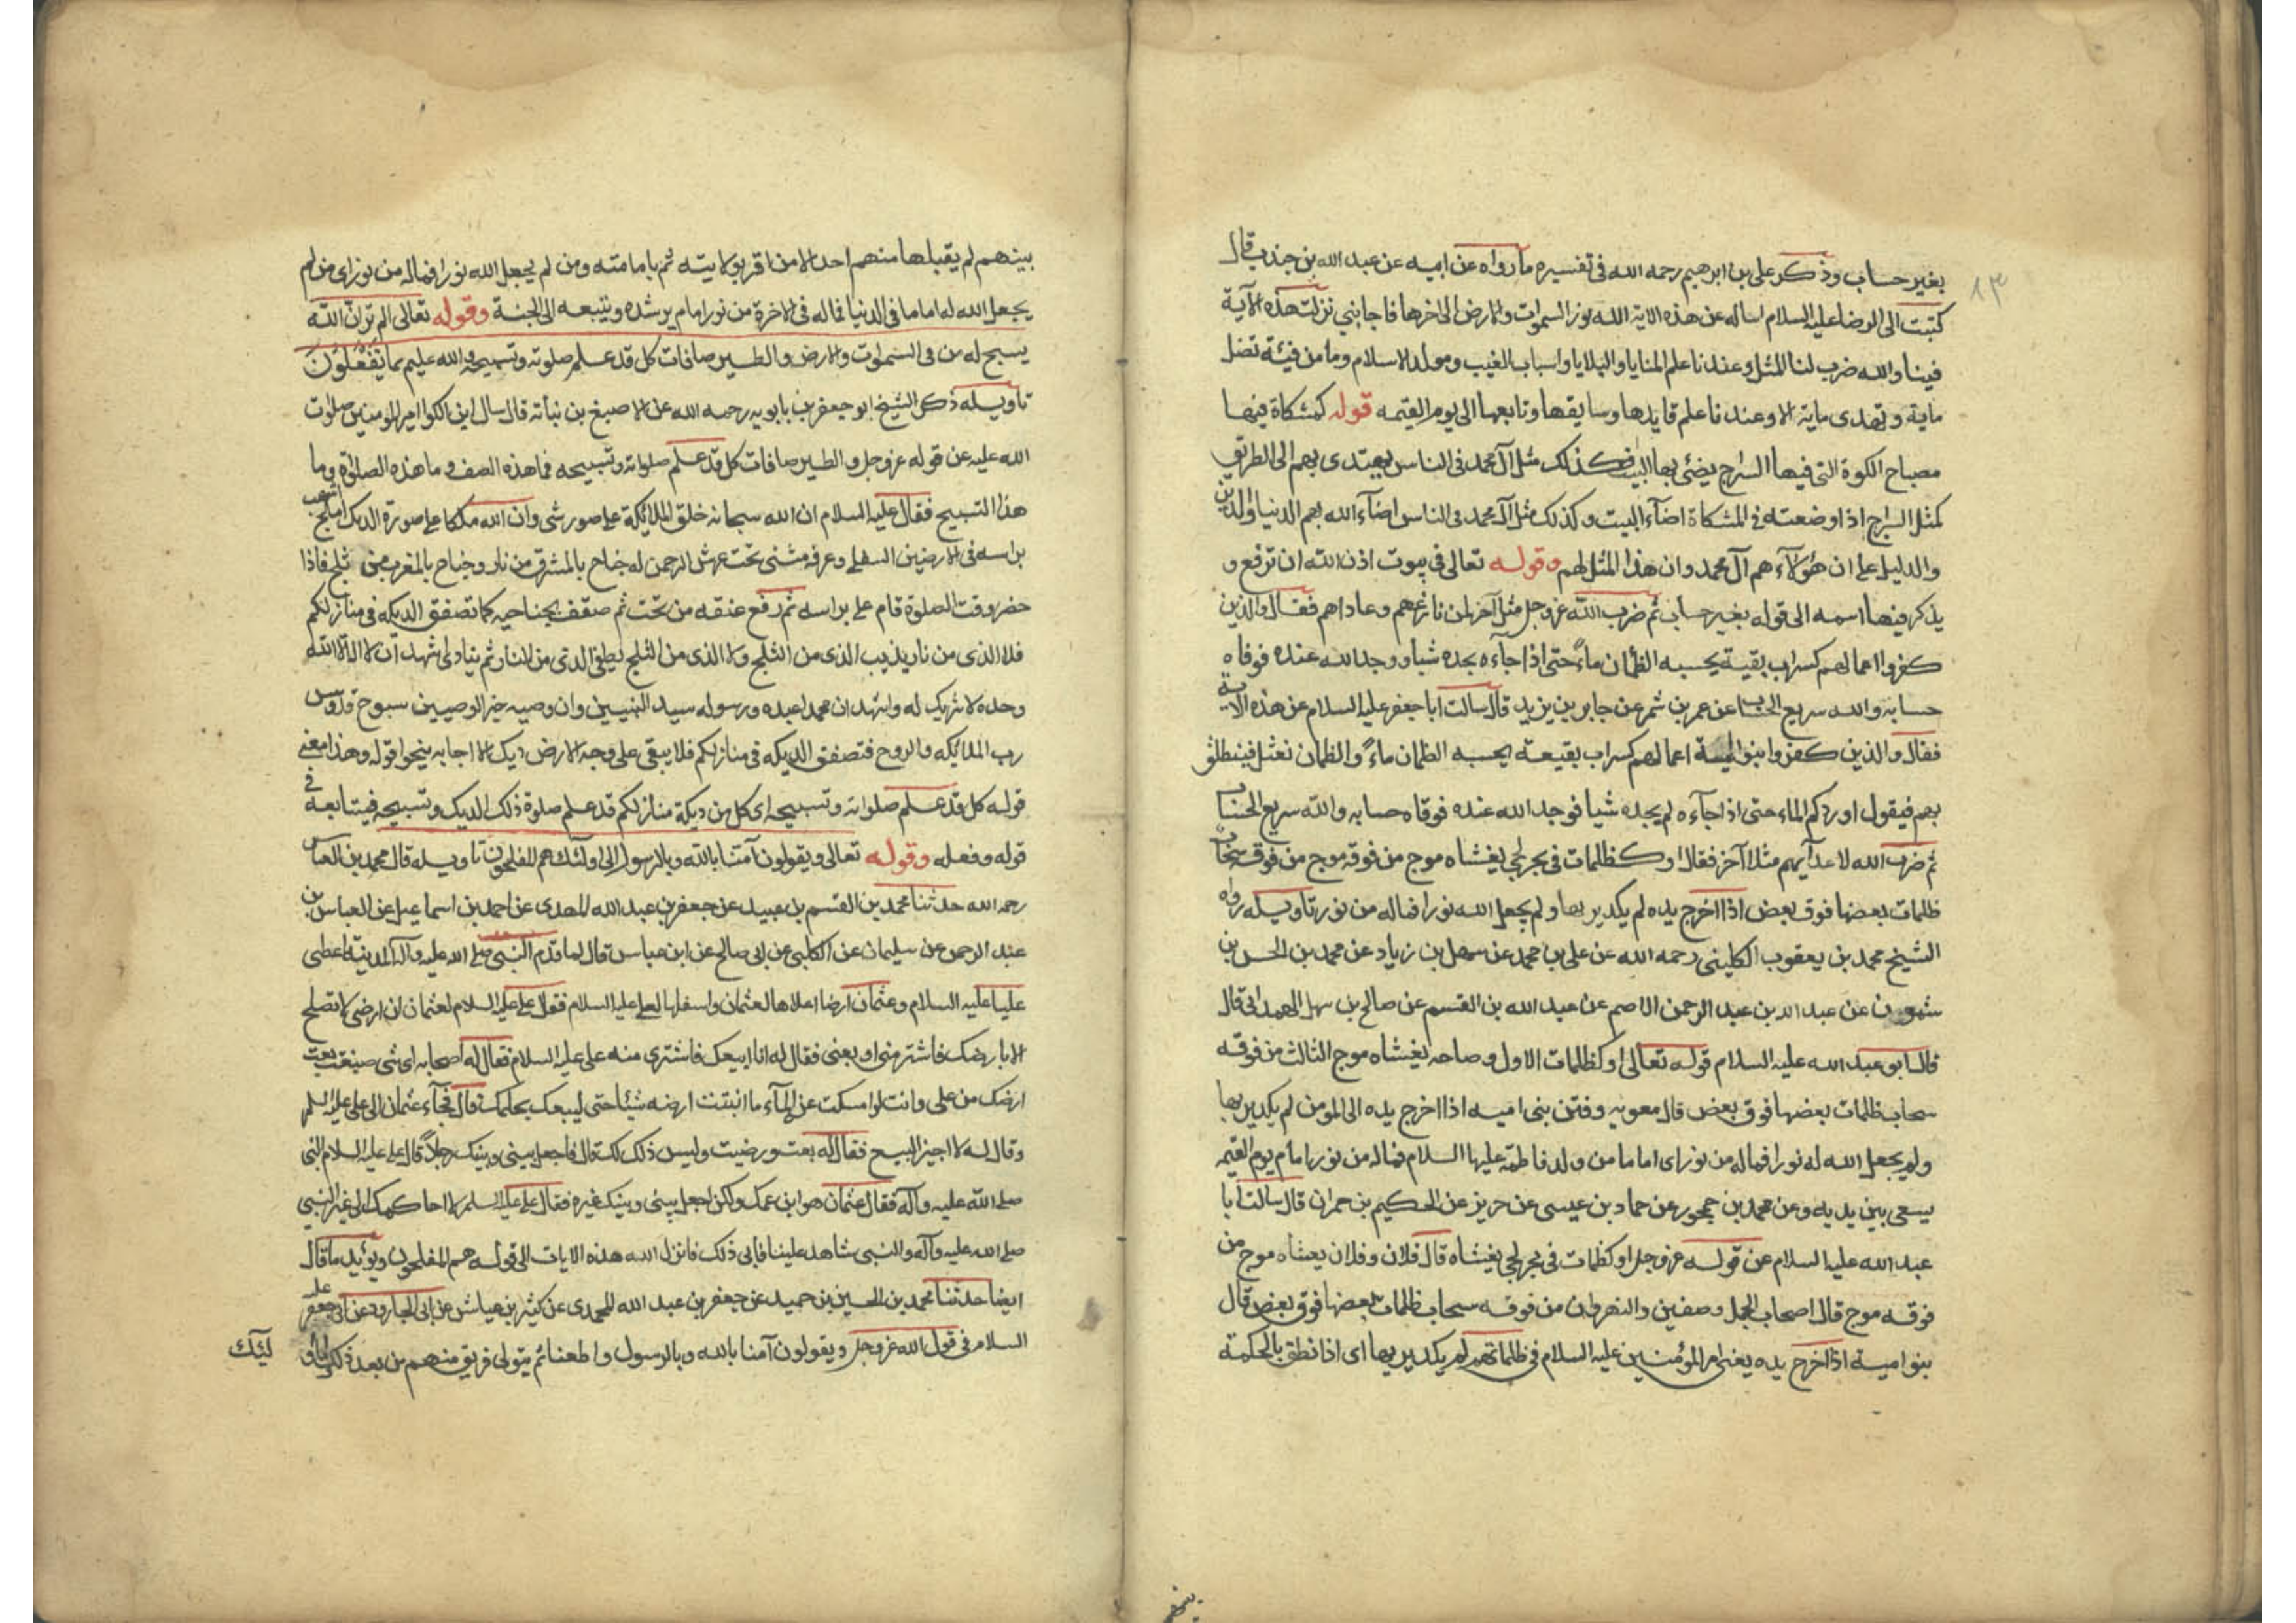 ٨٣
بغير حساب وذكر علي بن ابرهيم رحمه الله في تفسيره ما رواه عن ابيه عن عبد الله بن جندب قال
كتبت الى الرضا عليه السلام اساله عن هذه الاية الله نور السموات والارض الى اخرها فاجابني نزلت هذه الآية
فينا والله ضرب لنا المثل وعندنا علم المنايا والبلايا وانساب العرب ومولد الاسلام وما من فيئة تضل
ماية وتهدى ماية الا وعندنا علم قايدها وسايقها وتابعها الى يوم القيمه قوله كمشكاة فيها
مصباح الكوة التي فيها السراج يضئ بها البيت فكذلك مثل آل محمد في الناس يهتدى بهم الى الطريق
كمثل السراج اذا وضعته في المشكاة اضآء البيت وكذلك مثل آل محمد في الناس اضآء الله بهم الدنيا والدين
والدليل على ان هؤلآء هم آل محمد وان هذا المثل لهم وقوله تعالى في بيوت اذن الله ان ترفع و
يذكر فيها اسمه الى قوله بغير حساب ثم ضرب الله عز وجل مثلا آخر لمن نازعهم وعاداهم فقال والذين
كفروا اعمالهم كسراب بقيعة يحسبه الظمآن مآءً حتى اذا جآءه لم يجده شيا ووجد الله عنده فوفاه
حسابه والله سريع الحساب عن عمر بن شمر عن جابر بن يزيد قال سالت ابا جعفر عليه السلام عن هذه الآية
فقال والذين كفروا بنو امية اعمالهم كسراب بقيعة يحسبه الظمان ماءً والظمان نعثل فينطلق
بهم فيقول اوردكم الماء حتى اذا جآءه لم يجده شيا فوجد الله عنده فوفاه حسابه والله سريع الحساب
ثم ضرب الله لاعدآيهم مثلا آخر فقال او كظلمات في بحر لجي يغشاه موج من فوقه موج من فوقه سحاب
ظلمات بعضها فوق بعض اذا اخرج يده لم يكد يريها ولم يجعل الله نورا فماله من نور تاويله رواه
الشيخ محمد بن يعقوب الكليني رحمه الله عن علي بن محمد عن سهل بن زياد عن محمد بن الحسن بن
شمون عن عبد الله بن عبد الرحمن الاصم عن عبد الله بن القسم عن صالح بن سهل الهمداني قال
قال ابو عبد الله عليه السلام قوله تعالى او كظلمات الاول وصاحبه يغشاه موج الثالث من فوقه
سحاب ظلمات بعضها فوق بعض قال معويه وفتن بني اميه اذا اخرج يده الى المومن لم يكد يريها
ولم يجعل الله له نورا فماله من نور اى اماما من ولد فاطمة عليها السلام فماله من نور امام يوم القيمه
يسعى بين يديه وعن محمد بن جمهور عن حماد بن عيسى عن حريز عن الحكيم بن حمران قال سالت ابا
عبد الله عليه السلام عن قوله عز وجل او كظلمات في بحر لجي يغشاه قال فلان وفلان يغشاه موج من
فوقه موج قال اصحاب الجمل وصفين والنهروان من فوقه سحاب ظلمات بعضها فوق بعض قال
بنو امية اذا اخرج يده يعني امير المؤمنين عليه السلام في ظلماتهم لم يكد يريها اى اذا نطق بالحكمة
بينهم لم يقبلها منهم احد الا من اقر بولايته ثم بامامته ومن لم يجعل الله نورا فماله من نور اى من لم
يجعل الله له اماما في الدنيا فماله في الآخرة من نور امام يرشده ويتبعه الى الجنة وقوله تعالى الم تر ان الله
يسبح له من في السموات والارض والطير صافات كل قد علم صلوته وتسبيحه والله عليم بما يفعلون
تاويله ذكر الشيخ ابو جعفر بن بابويه رحمه الله عن الاصبغ بن نباته قال سال ابن الكوا امير المومنين صلوات
الله عليه عن قوله عز وجل والطير صافات كل قد علم صلواته وتسبيحه فما هذه الصف وما هذه الصلوة وما
هذا التسبيح فقال عليه السلام ان الله سبحانه خلق الملائكة على صور شى وان الله ملكا على صورة الديك املح اشهب
براسه في الارضين السفلى وعرفه مثنى تحت عرش الرحمن له جناح بالمشرق من نار وجناح بالمغرب من ثلج فاذا
حضر وقت الصلوة قام على براسه ثم رفع عنقه من تحت ثم صفق بجناحيه كما تصفق الديكه في منازلكم
فلا الذى من نار يذيب الذى من الثلج ولا الذى من الثلج يطفي الذى من النار ثم ينادى اشهد ان لا اله الا الله
وحده لا شريك له واشهد ان محمدا عبده ورسوله سيد النبيين وان وصيه خير الوصيين سبوح قدوس
رب الملائكه والروح فتصفق الديكه في منازلكم فلا يبقى على وجه الارض ديك الا اجابه بنحو قوله وهذا معنى
قوله كل قد علم صلواته وتسبيحه اى كل من ديكة منازلكم قد علم صلوة ذلك الديك وتسبيحه فيتابعه في
قوله وفعله وقوله تعالى ويقولون آمنا بالله وبالرسول الى اولئك هم المفلحون تاويله قال محمد بن العباس
رحمه الله حدثنا محمد بن القسم بن عبيد عن جعفر بن عبد الله المحمدى عن احمد بن اسماعيل عن العباس بن
عبد الرحمن عن سليمان عن الكلبي عن ابي صالح عن ابن عباس قال لما قدم النبي صلى الله عليه وآله المدينة اعطى
عليا عليه السلام وعثمان ارضا اعلاها لعثمان واسفلها لعلي عليه السلام فقال علي عليه السلام لعثمان ان ارضى لا تصلح
الا بارضك فاشتر منى او بعنى فقال له انا ابيعك فاشترى منه على عليه السلام فقال له اصحابه اى شى صنعت بعت
ارضك من على وانت لو امسكت عنه المآء ما انبتت ارضه شيئا حتى يبيعك بحكمك قال فجآء عثمان الى على عليه السلم
وقال له لا اجيز البيع فقال له بعت ورضيت وليس ذلك لك قال فاجعل بيني وبينك رجلاً قال على عليه السلام النبي
صلى الله عليه وآله فقال عثمان هو ابن عمك ولكن اجعل بيني وبينك غيره فقال على عليه السلم لا احاكمك الى غير النبي
صلى الله عليه وآله والنبي شاهد علينا فابى ذلك فانزل الله هذه الايات الى قوله هم المفلحون ويؤيد ما قال
ايضا حدثنا محمد بن الحسين بن حميد عن جعفر بن عبد الله المحمدى عن كثير بن عياش عن ابي الجارود عن ابي جعفر عليه
السلام في قول الله عز وجل ويقولون آمنا بالله وبالرسول واطعنا ثم يتولى فريق منهم من بعد ذلك وما